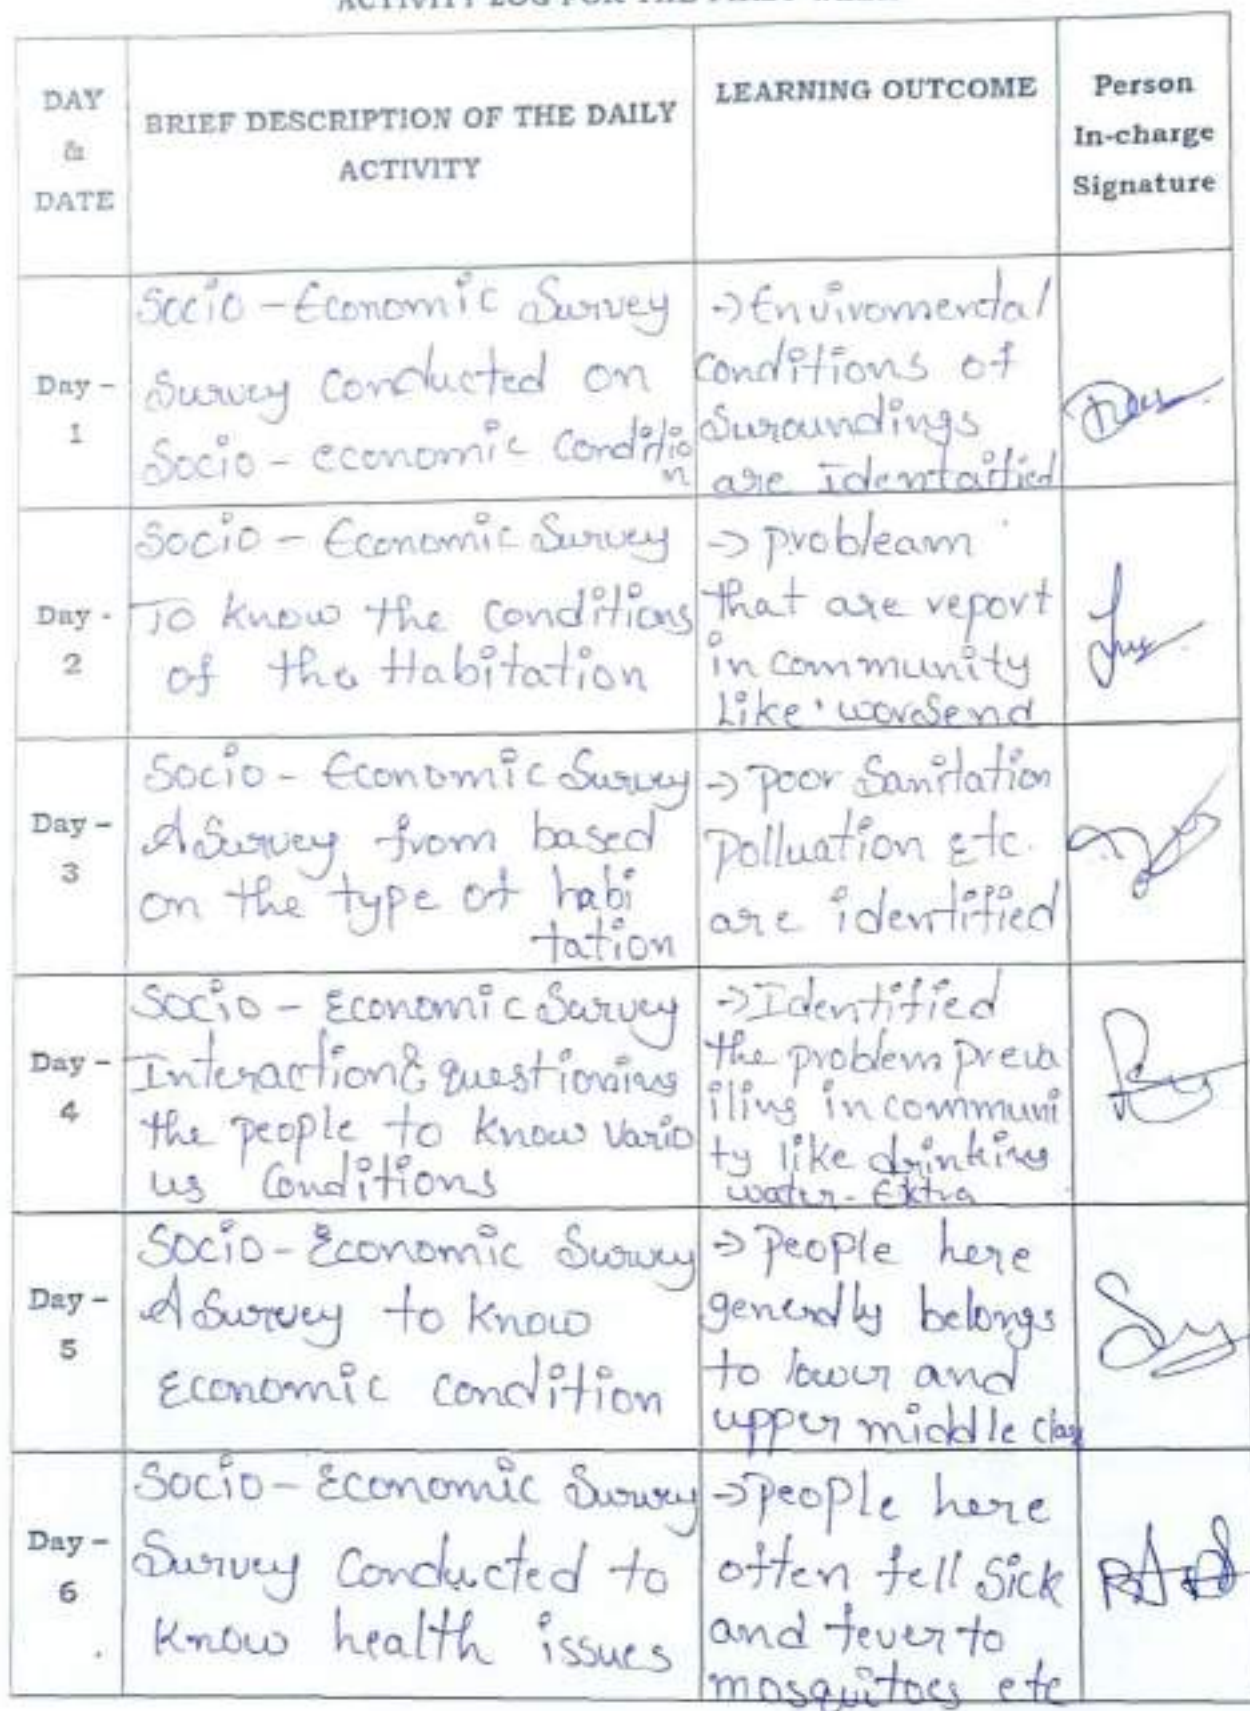 ACTIVITY LOG FOR THE FIRST WEEK
DAY
&
DATE
BRIEF DESCRIPTION OF THE DAILY
ACTIVITY
LEARNING OUTCOME
Person
In-charge
Signature
Day -
1
Socio - Economic Survey
Survey Conducted on
Socio - economic Conditio
n
-> Enviromerdal
Conditions of
Suroundings
are Identaified
Day -
2
Socio - Economic Survey
To know the conditions
of the Habitation
-> probleam
that are report
in community
Like
Day -
3
Socio - Economic Survey
A Survey from based
on the type of habi
tation
-> poor Sanitation
Polluation Etc.
are identified
Day -
4
Socio - Economic Survey
Interaction & questioning
the people to know vario
us Conditions
-> Identified
the problem preva
iling in communi
ty like drinking
water - Extra
Day -
5
Socio - Economic Survey
A Survey to know
Economic condition
-> People here
generally belongs
to lower and
upper middle clas
Day -
6
Socio - Economic Survey
Survey Conducted to
Know health issues
-> People here
often fell Sick
and fever to
mosquitoes etc